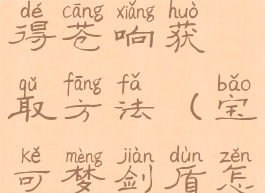 dé cāng xiǎng huò
得苍响获
qǔ fāng fǎ bǎo
取方法（宝
kě mèng jiàn dùn zěn
可梦剑盾怎